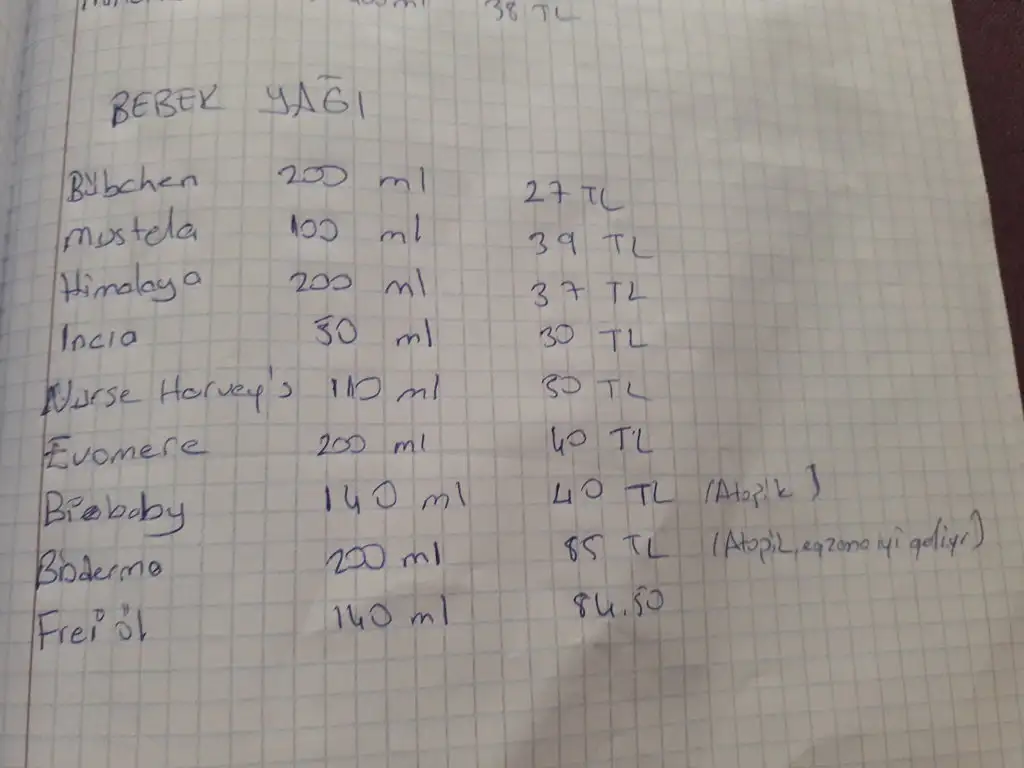 38 TL
BEBEK YAĞI
Bübchen 200 ml 27 TL
Mustela 100 ml 39 TL
Himalaya 200 ml 37 TL
Incia 50 ml 30 TL
Nurse Harvey's 110 ml 30 TL
Evomere 200 ml 40 TL
Biobaby 140 ml 40 TL (Atopik)
Bioderma 200 ml 85 TL (Atopik, egzama iyi geliyr)
Frei öl 140 ml 84.50